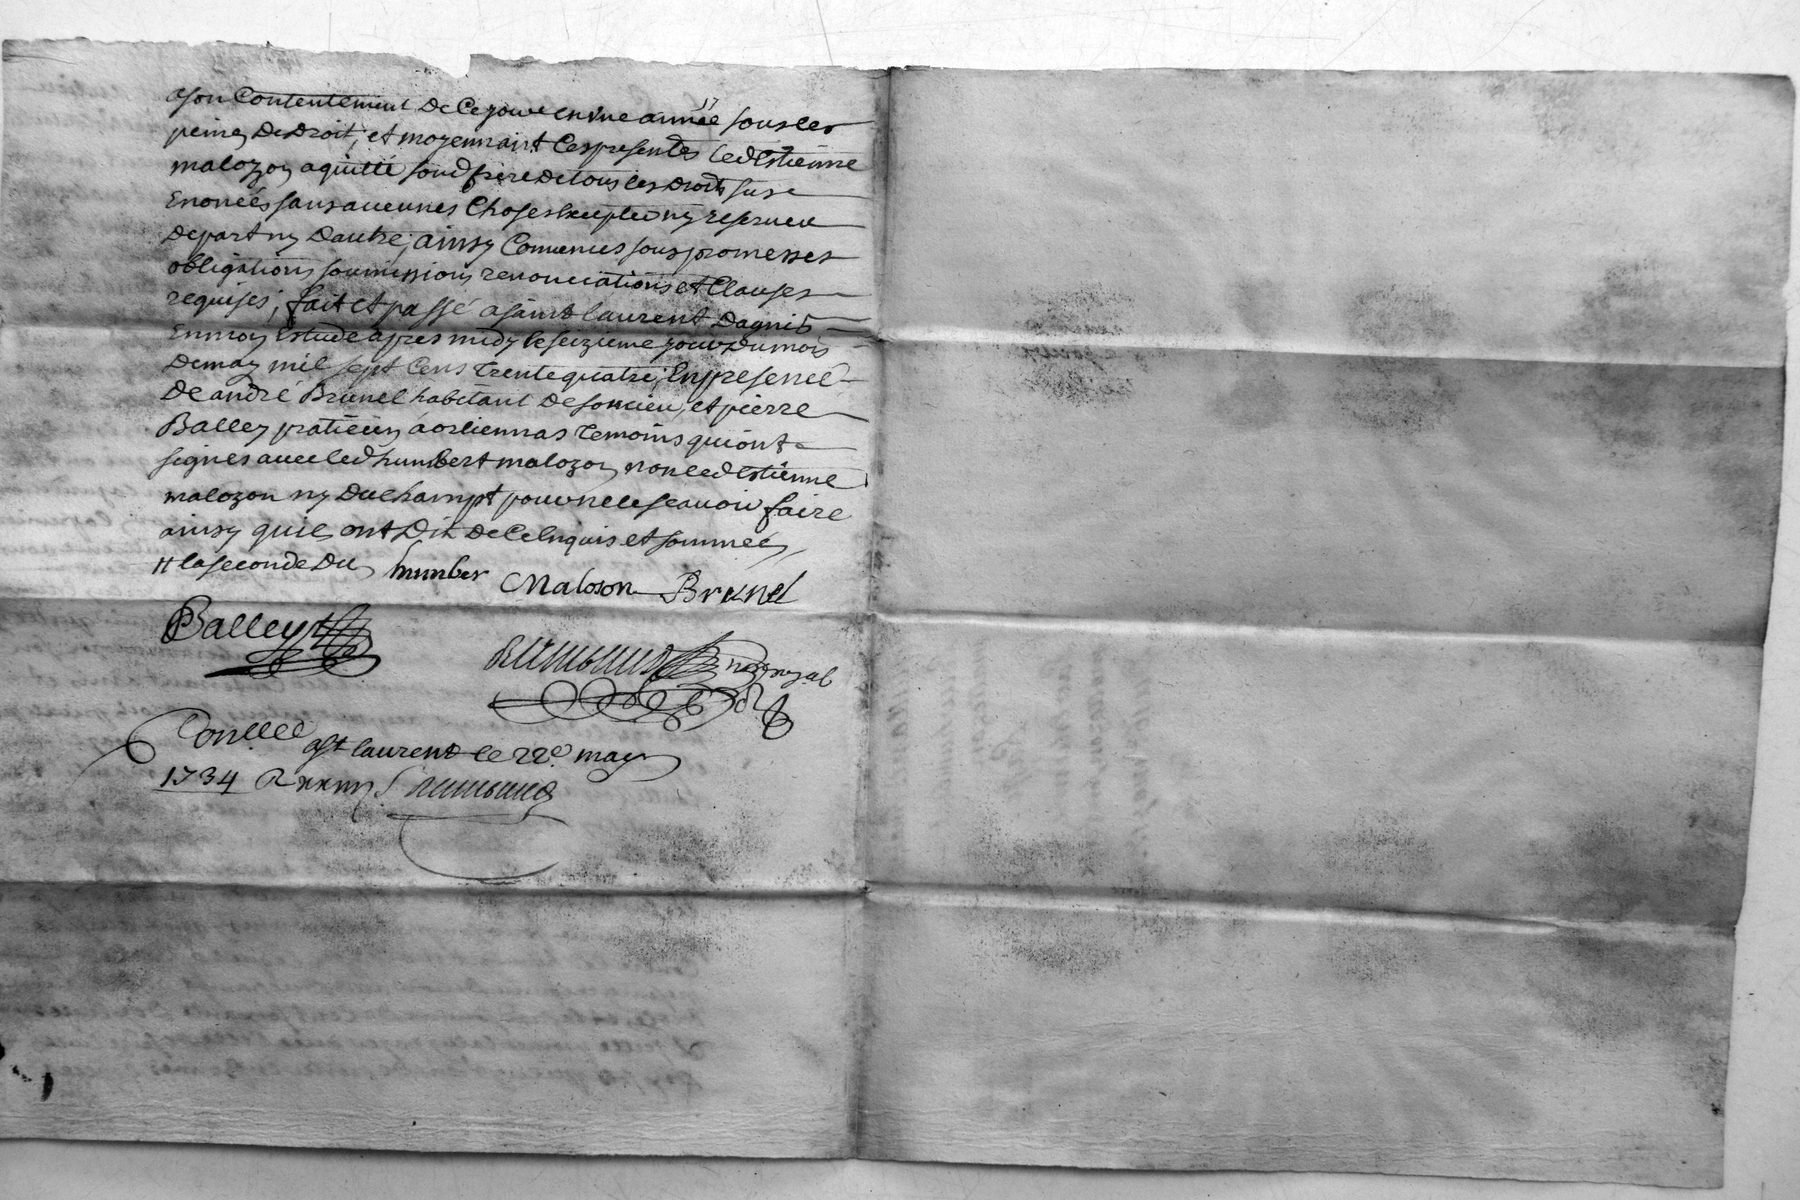 ason Contentement de Ce jour en une année // sous les
peines de droit, et moyennant Ces presentes led Estienne
malozon a quitté sond frere de tous les droits sus
Enoncés sans aucunes Choses Excepter ny reserver
depart ny dautre; ainsy Convenus sous promesses
obligations soumissions renonciations et Clauses
requises; fait et passé a saint laurent dagnis
En mon Estude apres midy le seizieme jour du mois
de may mil sept Cens trente quatre; En presence
de andré Brunel habitant de soucieu, et pierre
Balley pratitien a orliennas temoins qui ont
signes avec led humbert malozon non led Estienne
malozon ny duchampt pour ne le scavoir faire
ainsy quils ont dit de Ce Enquis et sommés
// la seconde du humber Maloson Brunel
Balley
no.re royal
Con.llé a St laurent le 22e may
1734 R